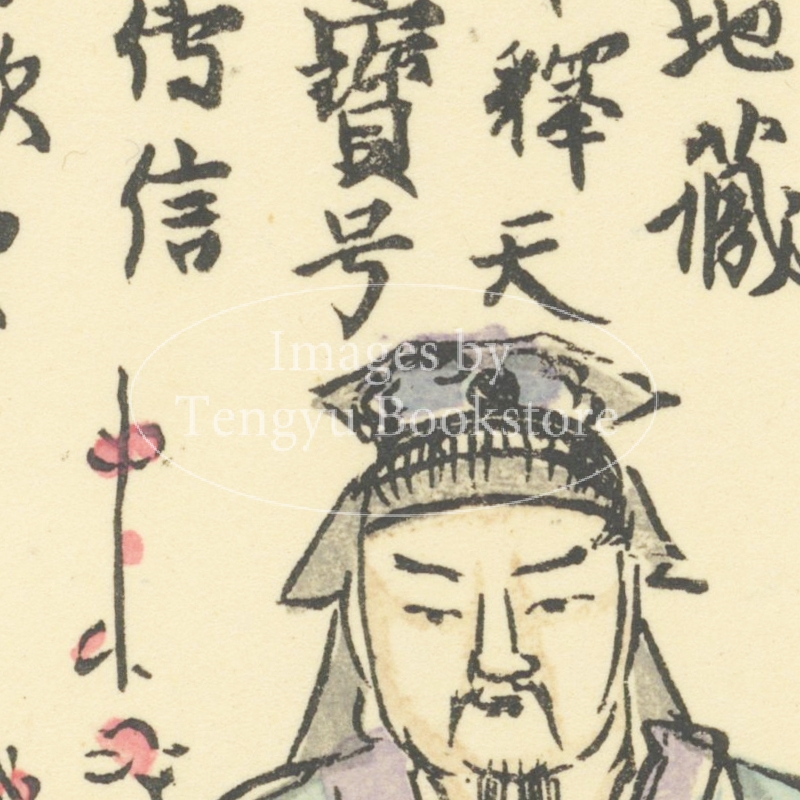 地藏
釋天
寶号
傳信
Images by
Tengyu Bookstore